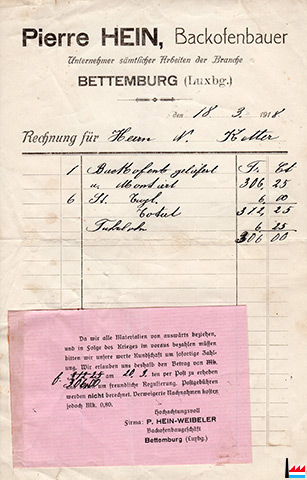 Pierre HEIN, Backofenbauer
Unternehmer sämtlicher Arbeiten der Branche
BETTEMBURG (Luxbg.)
den 18 3 1918
Rechnung für Herrn N. Keller
1 Backofent geliefert Fr. Ct
u. Montiert 306,25
6 St. 6 00
Total 312,25
6 25
306 00
Da wie alle Materialien von auswärts beziehen,
und in Folge des Krieges im voraus bezahlen müssen
bitten wir unsere werte Kundschaft um sofortige Zah-
lung. Wir erlauben uns deshalb den Betrag von Mk.
306.00 am 20. 3. ten per Post zu erheben
um freundliche Regulierung. Postgebühren
werden nicht berechnet. Verweigerte Nachnahmen kosten
jedoch Mk. 0,80.
Hochachtungsvoll
Firma: P. HEIN-WEIBELER
Backofenbaugeschäft
Bettemburg (Luxbg.)